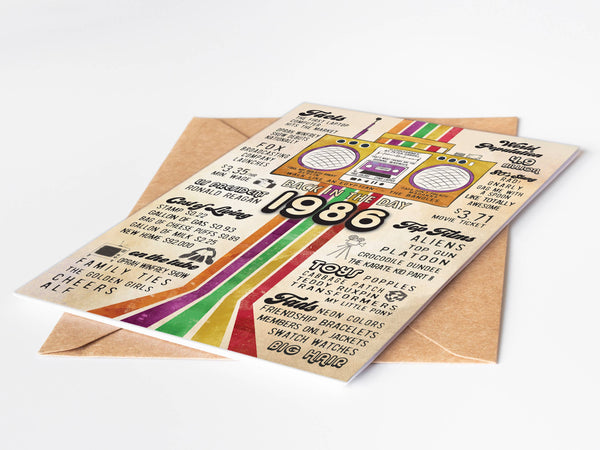 Facts
THE FIRST LAPTOP
COMPUTER
HITS THE MARKET
OPRAH WINFREY
SHOW DEBUTS
NATIONALLY
FOX
BROADCASTING
COMPANY
LAUNCHES
$3.35/HR
MIN. WAGE
US PRESIDENT
RONALD REAGAN
Cost of Living
STAMP $0.22
GALLON OF GAS $0.93
BAG OF CHEESE PUFFS $0.89
GALLON OF MILK $2.75
NEW HOME $92,000
on the tube
OPRAH WINFREY SHOW
FAMILY TIES
THE GOLDEN GIRLS
CHEERS
ALF
BANGLES
BACK IN THE DAY
1986
World
Population
4.9
BILLION
RAD
GNARLY
GAG ME WITH
A SPOON
LIKE TOTALLY
AWESOME
$3.71
MOVIE TICKET
Top Films
ALIENS
TOP GUN
PLATOON
CROCODILE DUNDEE
THE KARATE KID PART II
TOYS
POPPLES
CABBAGE PATCH
TEDDY RUXPIN
TRANSFORMERS
MY LITTLE PONY
Fads
NEON COLORS
FRIENDSHIP BRACELETS
MEMBERS ONLY JACKETS
SWATCH WATCHES
BIG HAIR